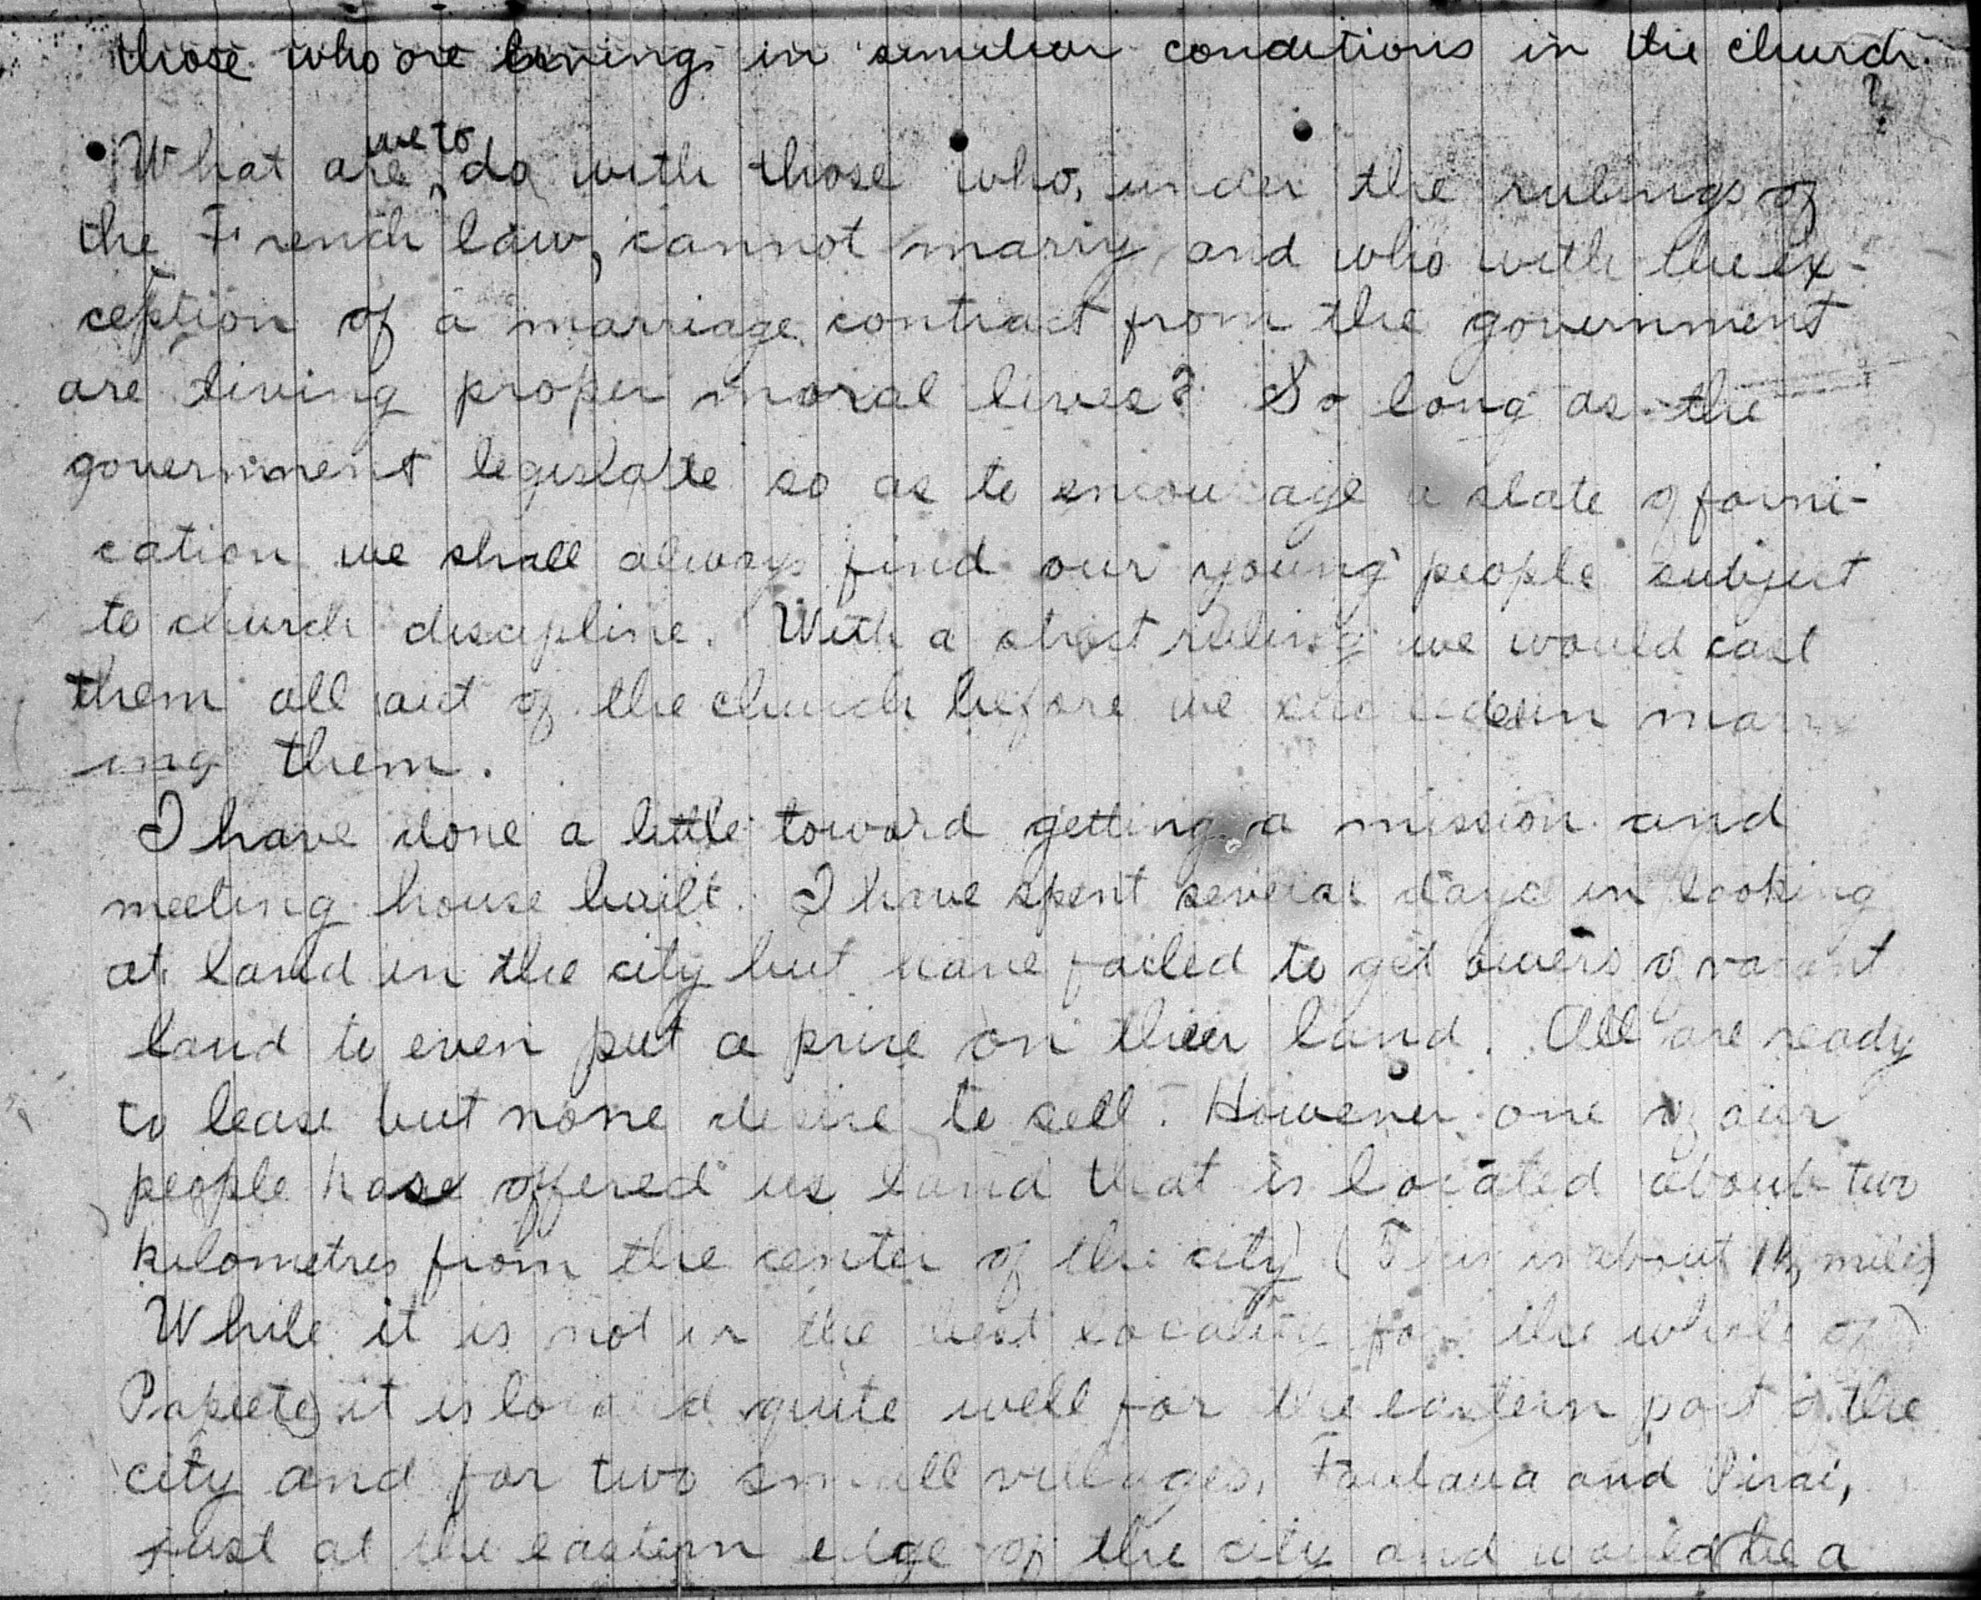 those who are living in similar conditions in the church
?
What are we to do with those who, under the rulings of
the French law, cannot marry, and who with the ex-
ception of a marriage contract from the government
are living proper moral lives? So long as the
government legislate so as to encourage a state of forni-
cation we shall always find our young people subject
to church discipline. With a strict ruling we would cast
them all out of the church before we succeeded in marry
ing them.
I have done a little toward getting a mission and
meeting house built. I have spent several days in looking
at land in the city but have failed to get owers of vacant
land to even put a price on their land. All are ready
to lease but none desire to sell. However one of our
people has offered us land that is located about two
kilometres from the center of the city (This is about 1¼ miles)
While it is not in the best locality for the whole of
Papeete it is located quite well for the eastern part of the
city and for two small villages, Fautaua and Pirai,
just at the eastern edge of the city and would be a